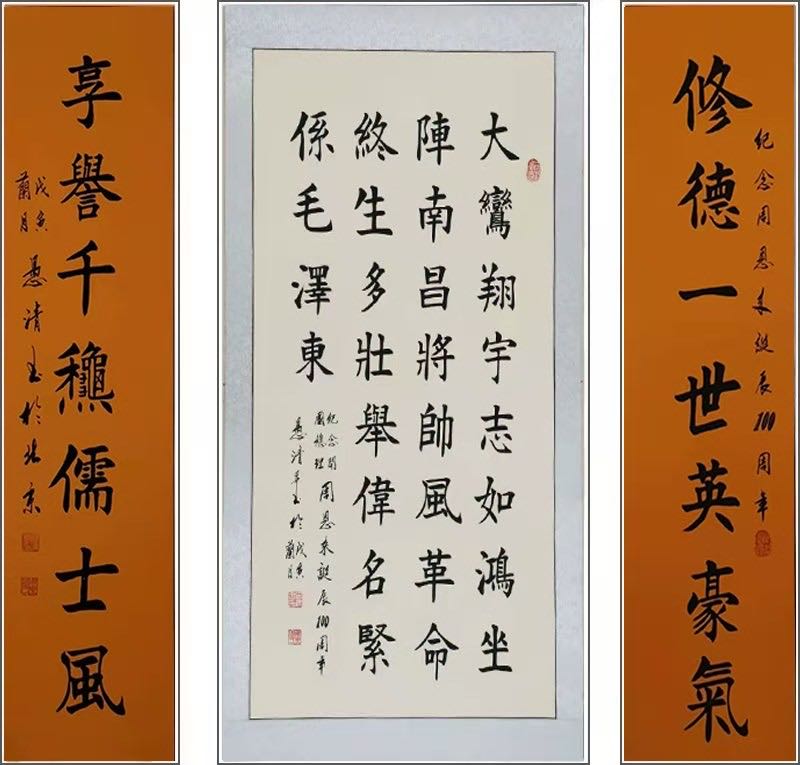 紀念周恩来誕辰100周年
修德一世英豪氣
大鸞翔宇志如鴻坐
陣南昌將帥風革命
終生多壯舉偉名緊
係毛澤東
紀念開國總理周恩来誕辰100周年
愚清平书於戊寅蘭月
享譽千龝儒士風
戊寅蘭月愚清书於北京